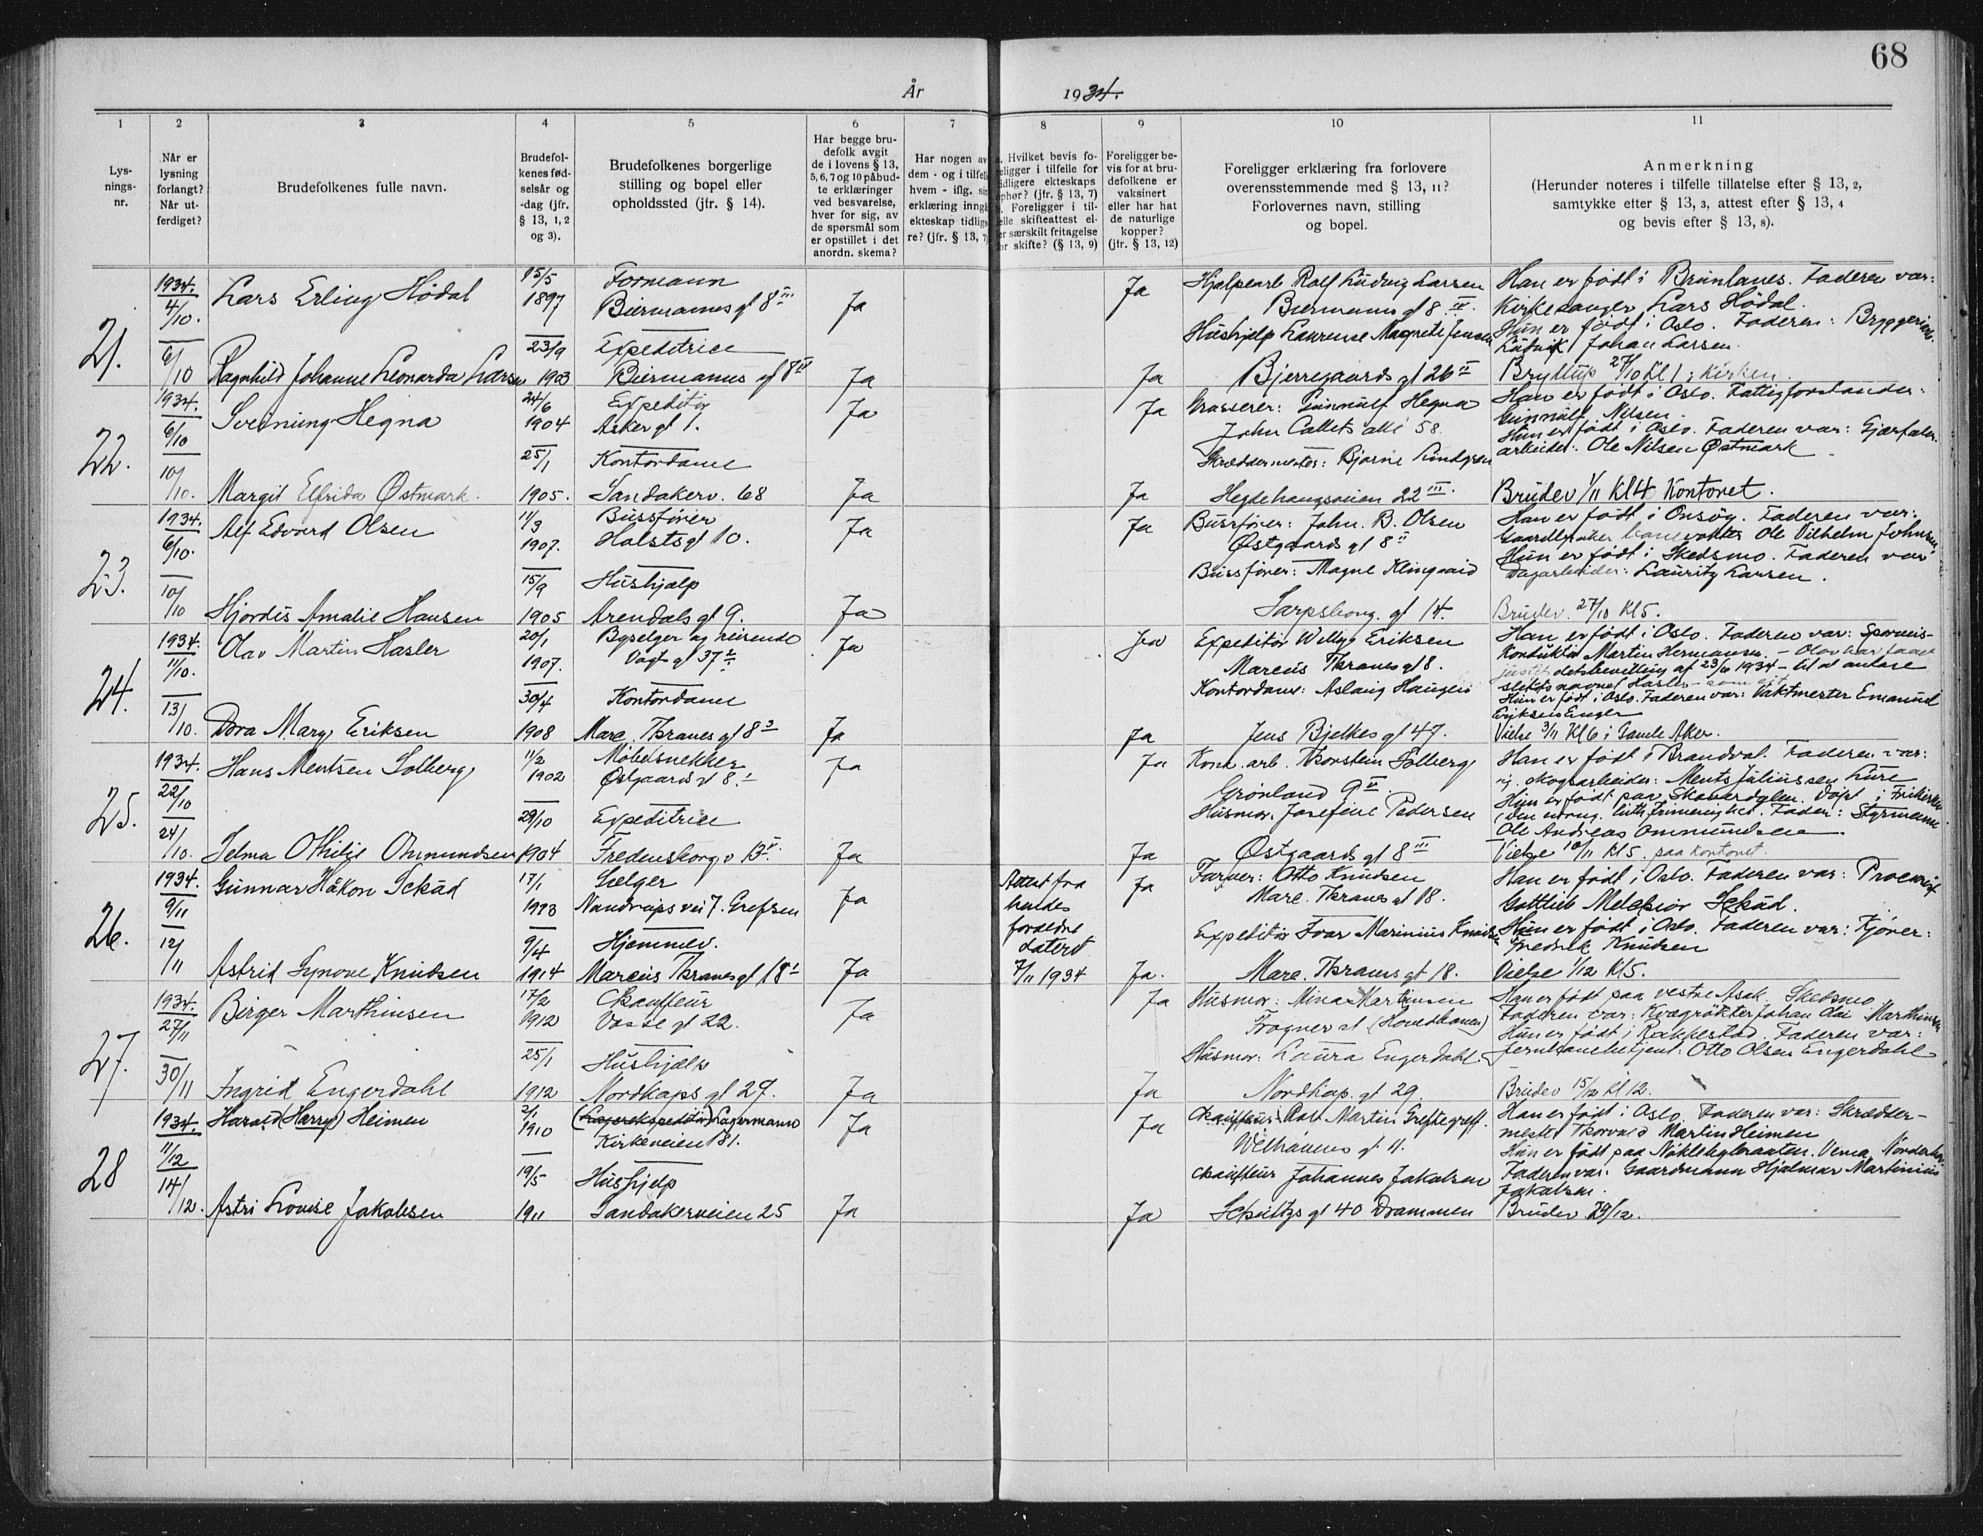 68
År 1934.
1 2 3 4 5 6 7 8 9 10 11
Lys-
nings-
nr.
Når er
lysning
forlangt?
Når ut-
ferdiget?
Brudefolkenes fulle navn.
Brudefol-
kenes fød-
selsår og
-dag (jfr.
§ 13, 1, 2
og 3).
Brudefolkenes borgerlige
stilling og bopel eller
opholdssted (jfr. § 14).
Har begge bru-
defolk avgit
de i lovens § 13,
5, 6, 7 og 10 påbud-
te erklæringer
ved besvarelse,
hver for sig, av
de spørsmål som
er opstillet i det
anordn. skema?
Har nogen av
dem - og i tilfelle
hvem - iflg.
erklæring inngå
ekteskap tidlig
re? (jfr. § 13, 7
Hvilket bevis fo-
religger i tilfelle for
tidligere ekteskaps
ophør? (jfr. § 13, 7)
Foreligger i til-
felle skifteattest el-
er særskilt fritagelse
for skifte? (§ 13, 9)
Foreligger be-
vis for at bru-
defolkene er
vaksinert
eller har hat
de naturlige
kopper?
(jfr. § 13, 12)
Foreligger erklæring fra forlovere
overensstemmende med § 13, 11?
Forlovernes navn, stilling
og bopel.
Anmerkning
(Herunder noteres i tilfelle tillatelse efter § 13, 2,
samtykke efter § 13, 3, attest efter § 13, 4
og bevis efter § 13, 8).
21.
1934.
4/10.
6/10
Lars Erling Hødal
15/5
1897
Formann
Biermanns gt 8 III
Ja
Ja
Hjelpearb Ralf Ludvig Larsen
Biermanns gt 8 IV
Han er født i Brunlanes. Faderen var:
Kirkesanger Lars Hødal.
Ragnhild Johanne Leonarda Larsen
23/9
1903
Expeditrice
Biermanns gt 8 IV
Ja
Ja
Hushjelp Laurense Magnete Jensen
Bjerregaards gt 26 II
Hun er født i Oslo. Faderen: Bryggeriarb.
Ludvik Johan Larsen.
Bryllup 27/10 Kl 1 i Kirken.
22.
1934.
6/10
10/10.
Sveinung Hegna
24/6
1904
Expeditør
Asker gt 1.
Ja
Ja
Grosserer: Gunnulf Hegna
John Colletts alle 58.
Han er født i Oslo. Fattigforstander:
Gunnulf Nilsen.
Margit Elfrida Østmark.
25/1
1905.
Kontordame
Sandakerv. 68
Ja
Ja
Skreddermester: Bjarne Lindgren
Hegdehaugsveien 22 III.
Hun er født i Oslo. Faderen var: Gjærfabr.
arbeider: Ole Nilsen Østmark
Brudev 1/11 Kl 4 Kontoret.
23.
1934.
6/10.
10/10
Alf Edvard Olsen
11/3
1907.
Bussfører
Holsts gt 10.
Ja
Ja
Bussfører: John. B. Olsen
Østgaards gt 8 II
Han er født i Onsøy. Faderen var:
Gaardbruker banevokter Ole Vilhelm Johnsen
Hjørdis Amalie Hansen
15/9
1905
Hushjelp
Arendals gt 9.
Ja
Bussfører: Magne Klingaard
Sarpsborg. gt 14.
Hun er født i Skedsmo. Faderen var
Dagarbeider: Lauritz Larsen.
Brudev. 27/10 Kl 5.
24.
1934.
11/10.
13/10.
Olav Martin Hasler
20/1
1907.
Byselger og reisende
Vogts gt 37 2.
Ja
Ja
Expeditør Willy Eriksen
Marcus Thranes gt 8.
Han er født i Oslo. Faderen var: Sporveis-
Konduktør Martin Hermansen. - Olav har faaet
justitsdets bevilling af 23/6 1934 - til at antage
slektsnavnet Hasler
Dora Mary Eriksen
30/4
1908
Kontordame
Marc. Thranes gt 8 3
Ja
Ja
Kontordame: Aslaug Haugen
Jens Bjelkes gt 47.
Hun er født i Oslo. Faderen var: Vaktmester Emanuel
Eriksen Enger
Vielse 3/11 Kl 6 i Gamle Aker.
25.
1934.
22/10
24/10.
Hans Mentsen Solberg
11/2
1902
Møbelsnekker
Østgaards gt 8.
Ja
Ja
Kont. arb. Thorstein Solberg
Grønland 9 II.
Han er født i Brandval. Faderen var:
skogsarbeider: Ments Juliussen Lure
Selma Othilie Ommundsen
29/10
1904
Expeditrice
Fredensborgv 13 V.
Ja
Ja
Husmor: Josefine Pedersen
Østgaards gt 8 III
Hun er født paa Skaverdylen. Døpt i Frikirken
i den evang. luth. frimenighet. Fader: Styrmann
Ole Andreas Ommundsen.
Vielse 10/11 Kl 5. paa Kontoret.
26.
1934.
9/11
12/11
Gunnar Håkon Schåd
17/1
1913
Selger
Nandrups vei 7. Grefsen
Ja
Attest fra
hendes
foreldre
dateret
7/11 1934
Ja
Farver: Otto Knudsen
Marc. Thranes gt 18.
Han er født i Oslo. Faderen var: Procurist
Gottlieb Melchior Schåd.
Astrid Synove Knudsen
9/4
1914
Hjemmev.
Marcus Thranes gt 18 1
Ja
Ja.
Expeditør Ivar Marinius Knudsen
Marc. Thranes gt 18.
Hun er født i Oslo. Faderen var: Kjører:
Fredrik Knudsen
Vielse 1/12 Kl 5.
27.
1934.
27/11
30/11
Birger Marthinsen
17/2
1912
Chauffeur
Vosse gt 22.
Ja
Ja
Husmor: Mina Martinsen
Frogner st (Hovedbanen)
Han er født paa vestre Asak, Skedsmo.
Faderen var: Kvægrøkter Johan Marthinsen
Ingrid Engerdahl
25/1
1912
Hushjelp
Nordkaps gt 29.
Ja
Ja
Husmor: Laura Engerdahl
Nordkap. gt 29.
Hun er født i Rakkestad. Faderen var:
Jernbanebetjent. Otto Olsen Engerdahl
Brudev 15/12 kl 12.
28
1934.
11/12
14/12.
Harald (Harry) Heimen
2/1
1910
(Lagerekspeditør) Lagermann
Kirkeveien 181.
Ja
Ja
Chauffeur: Rolf Martin Greftegreff.
Welhavens gt 11.
Han er født i Oslo. Faderen var: Skredder-
mester Thorvald Martin Heimen
Astri Lovise Jakobsen
19/5
1911
Hushjelp
Sandakerveien 25
Ja
Ja
chauffeur Johannes Jakobsen
Schultzs gt 40 Drammen
Hun er født paa Nøklebyeraaten. Vema, Nønderhov
Faderen var: Gaardmann Hjalmar Martinius
Jakobsen.
Brudev 29/12.